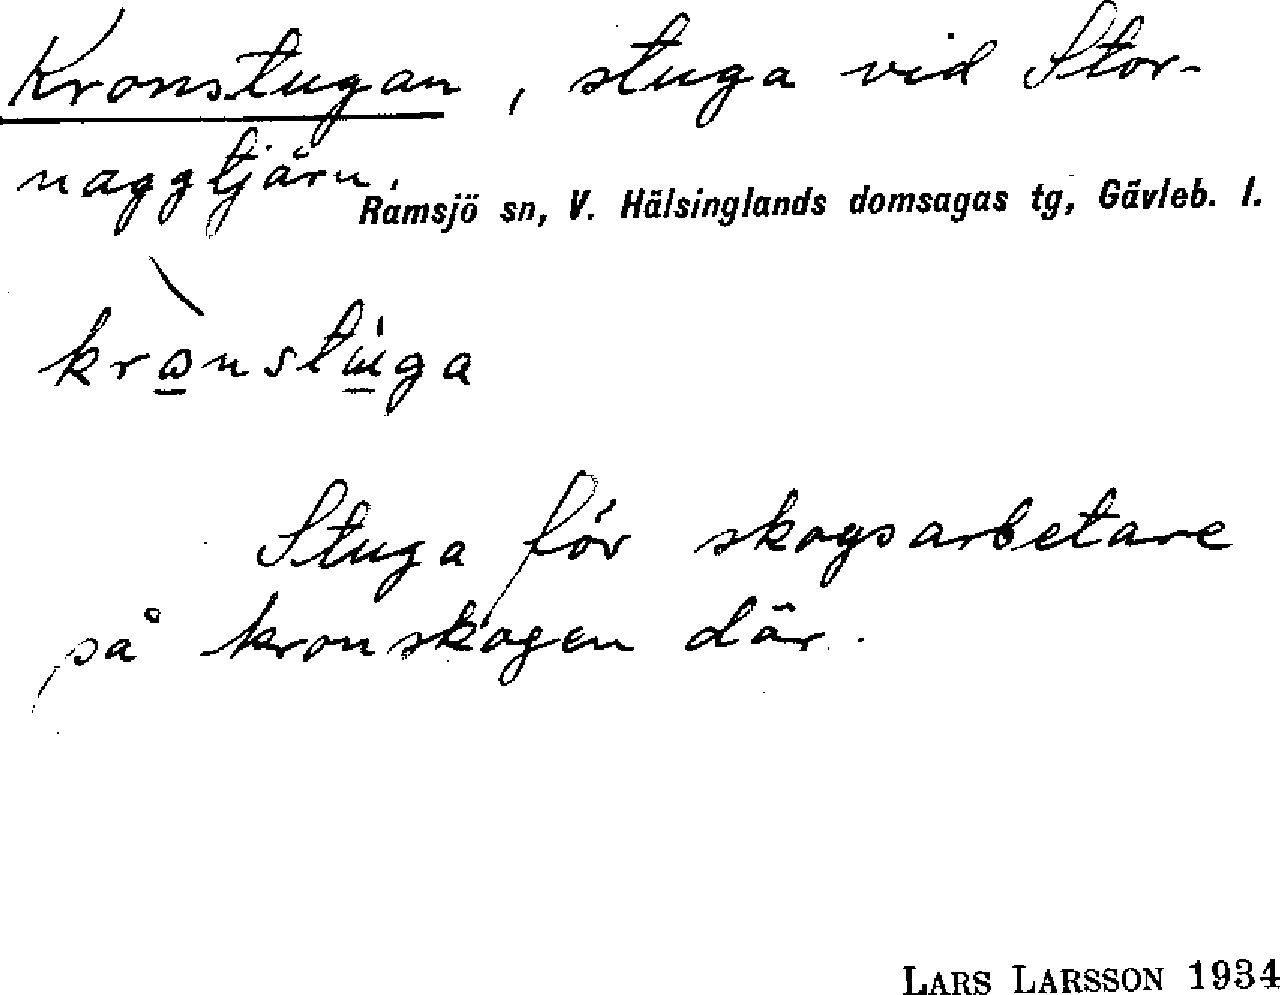 Kronstugan, stuga vid Stor-
naggtjärn.
Ramsjö sn, V. Hälsinglands domsagas tg, Gävleb. l.
krωnstuga
Stuga för skogsarbetare
på kronskogen där.
LARS LARSSON 1934